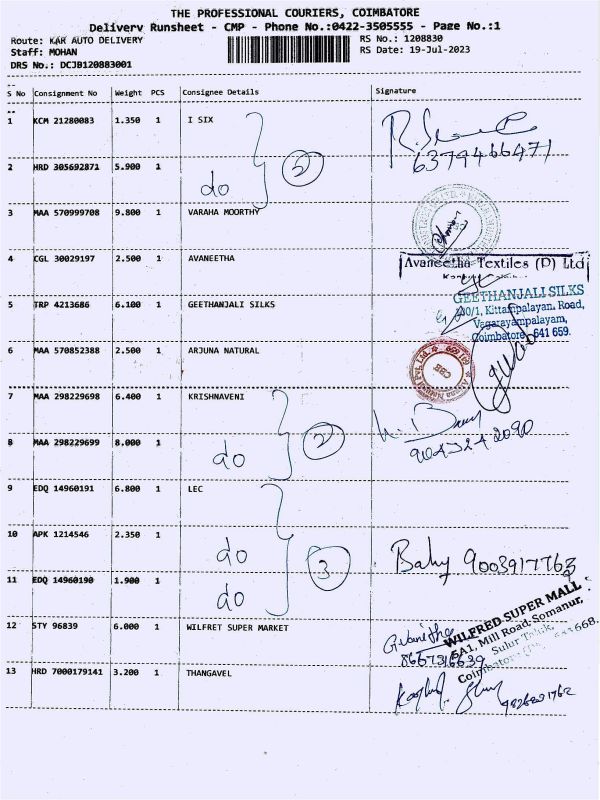 THE PROFESSIONAL COURIERS, COIMBATORE
Delivery Runsheet - CMP - Phone No.:0422-3505555 - Page No.:1
Route: KAR AUTO DELIVERY
RS No.: 1208830
Staff: MOHAN
RS Date: 19-Jul-2023
DRS No.: DCJB120883001
S No Consignment No Weight PCS Consignee Details Signature
1 KCM 21280083 1.350 1 I SIX
6379466471
2 HRD 305692871 5.900 1 do 2
3 MAA 570999708 9.800 1 VARAHA MOORTHY
4 CGL 30029197 2.500 1 AVANEETHA
Avaneetha Textiles (P) Ltd
5 TRP 4213686 6.100 1 GEETHANJALI SILKS
GEETHANJALI SILKS
Kittampalayan. Road,
Vagarayampalayam,
Coimbatore - 641 659.
6 MAA 570852388 2.500 1 ARJUNA NATURAL
CBE
7 MAA 298229698 6.400 1 KRISHNAVENI
8 MAA 298229699 8.000 1 do 2
9 EDQ 14960191 6.800 1 LEC
10 APK 1214546 2.350 1 do 3 Baby 9003917763
11 EDQ 14960190 1.900 1 do
12 STY 96839 6.000 1 WILFRET SUPER MARKET
WILFRED SUPER MALL
5A1, Mill Road, Somanur,
Sulur Taluk,
13 HRD 7000179141 3.200 1 THANGAVEL